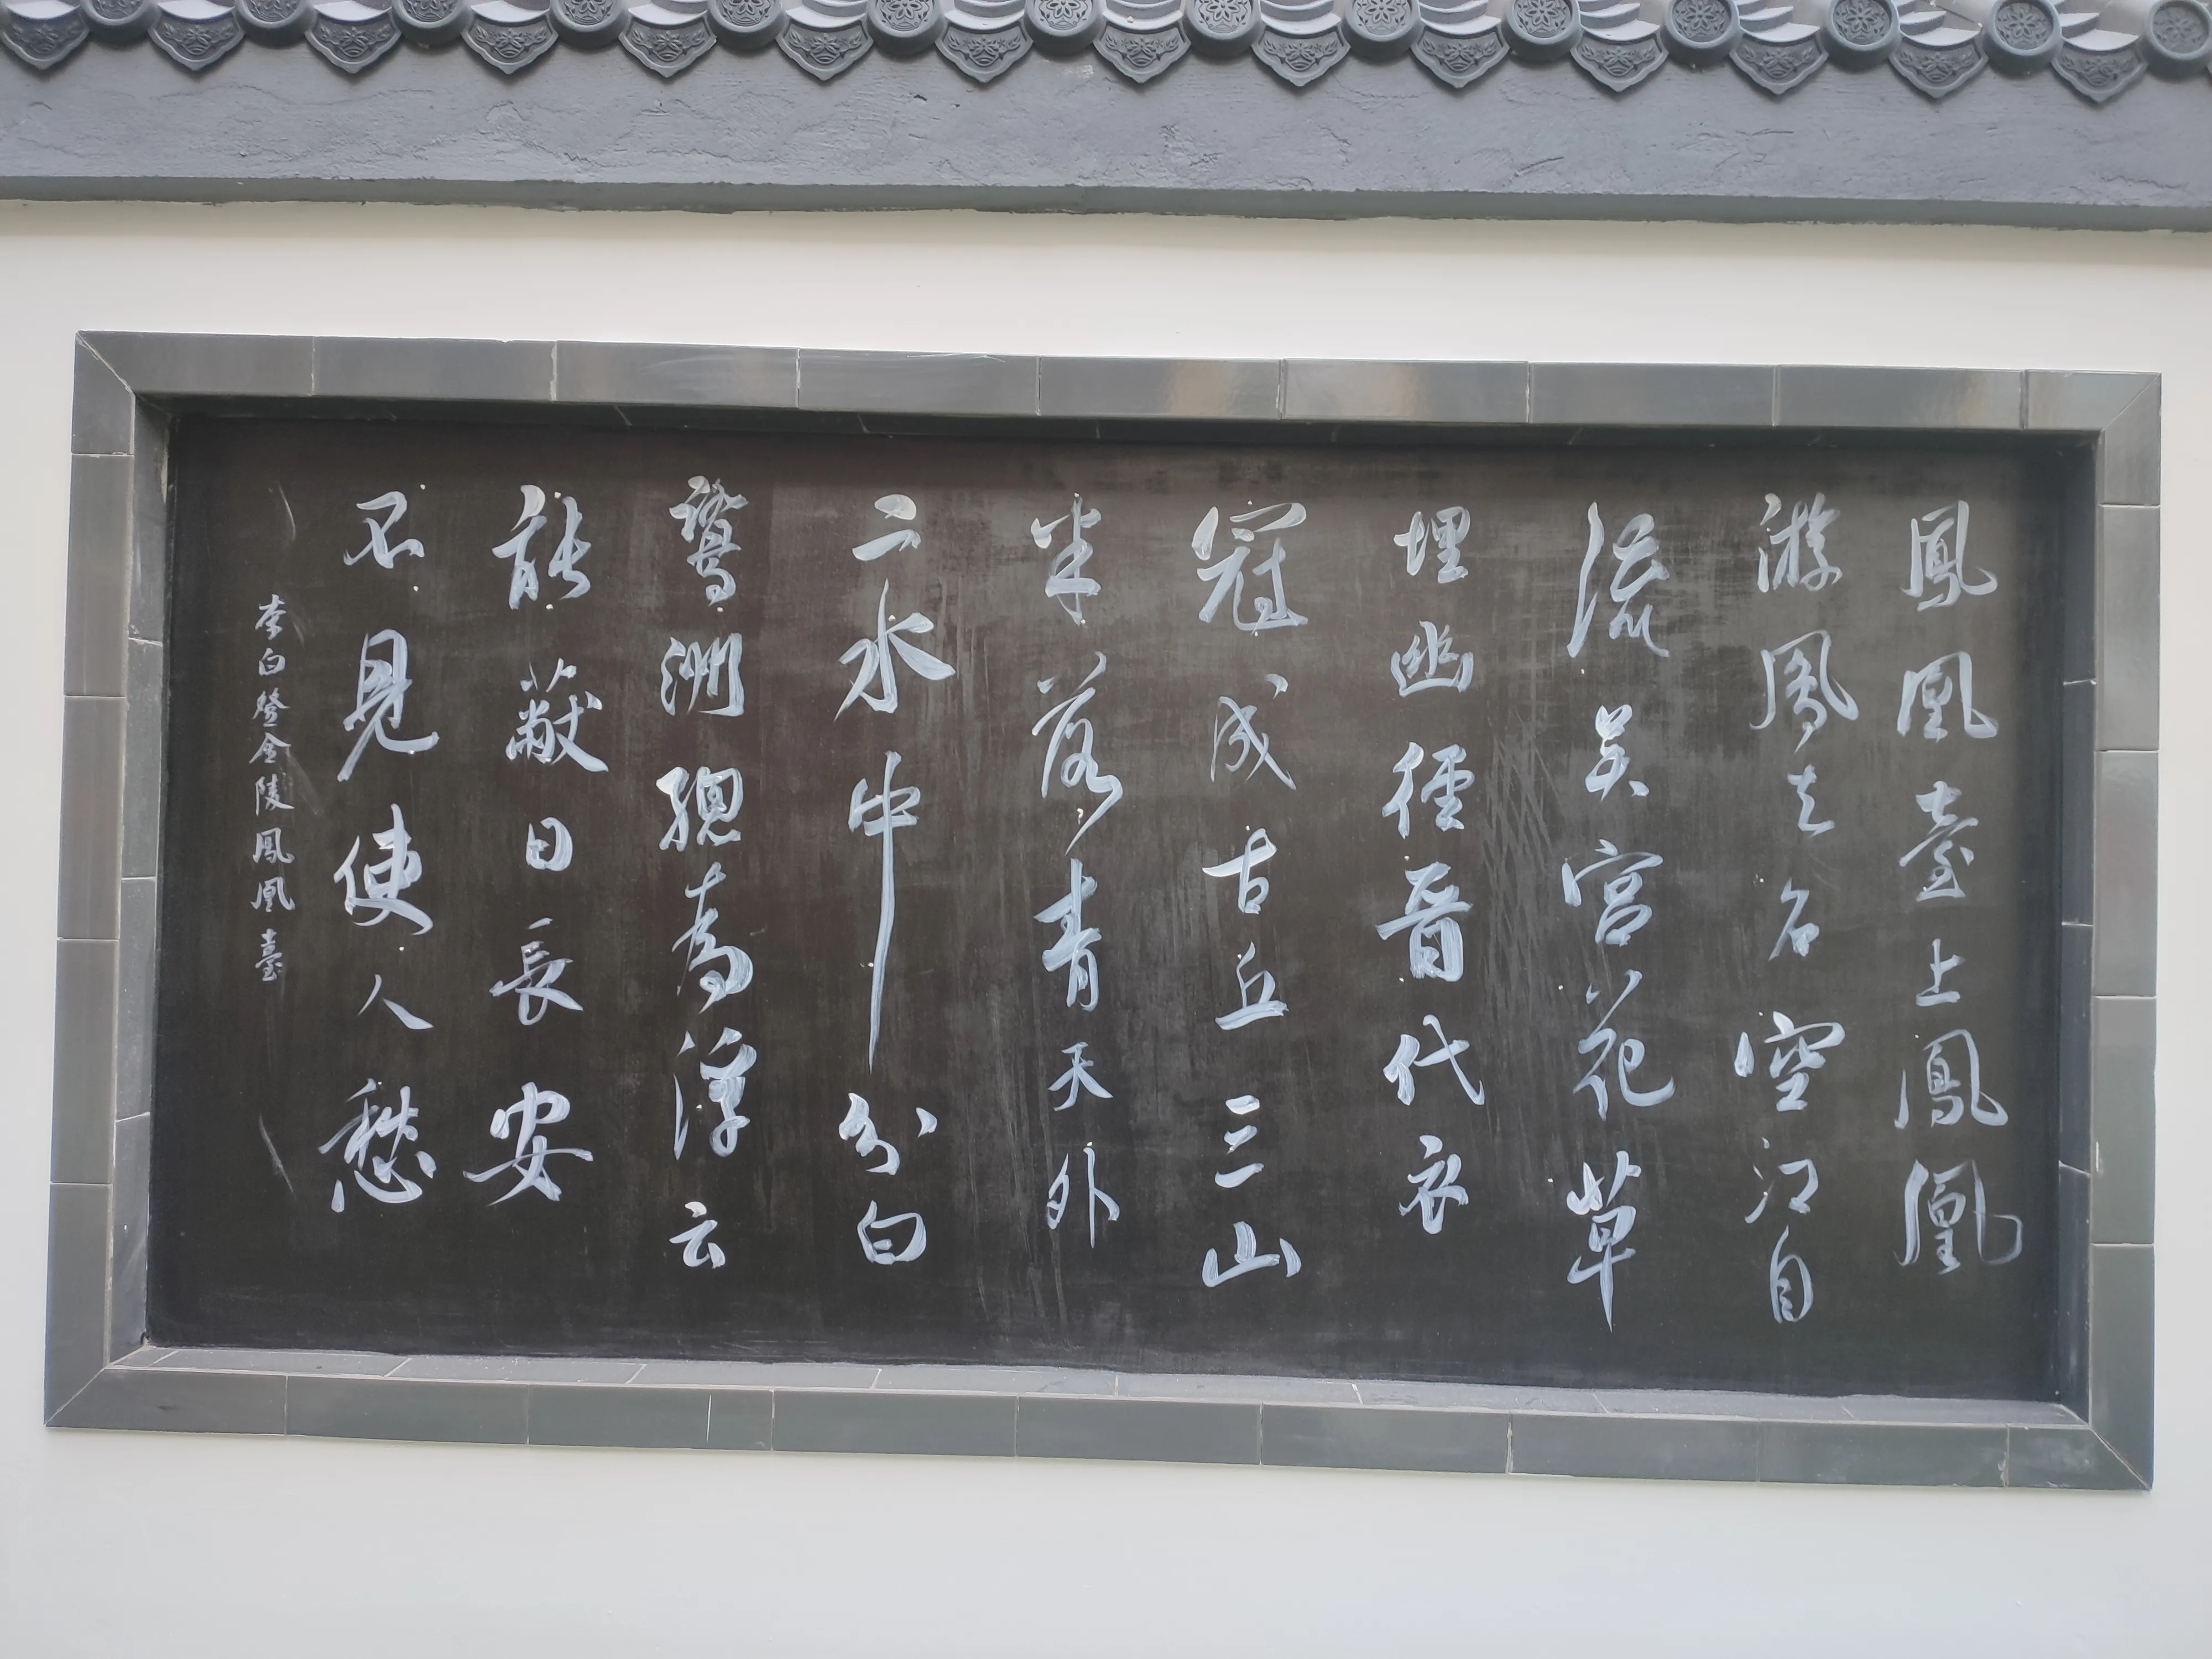 鳳凰臺上鳳凰
游鳳去名空江自
流吴宮花草
埋幽徑晉代衣
冠成古丘三山
半落青天外
二水中分白
鷺洲總為浮云
能蔽日長安
不見使人愁
李白登金陵鳳凰臺